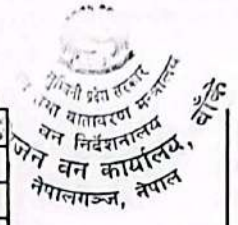 लुम्बिनी प्रदेश सरकार
तथा वातावरण मन्त्रालय
वन निर्देशनालय
जन वन कार्यालय, बाँके
नेपालगञ्ज, नेपाल